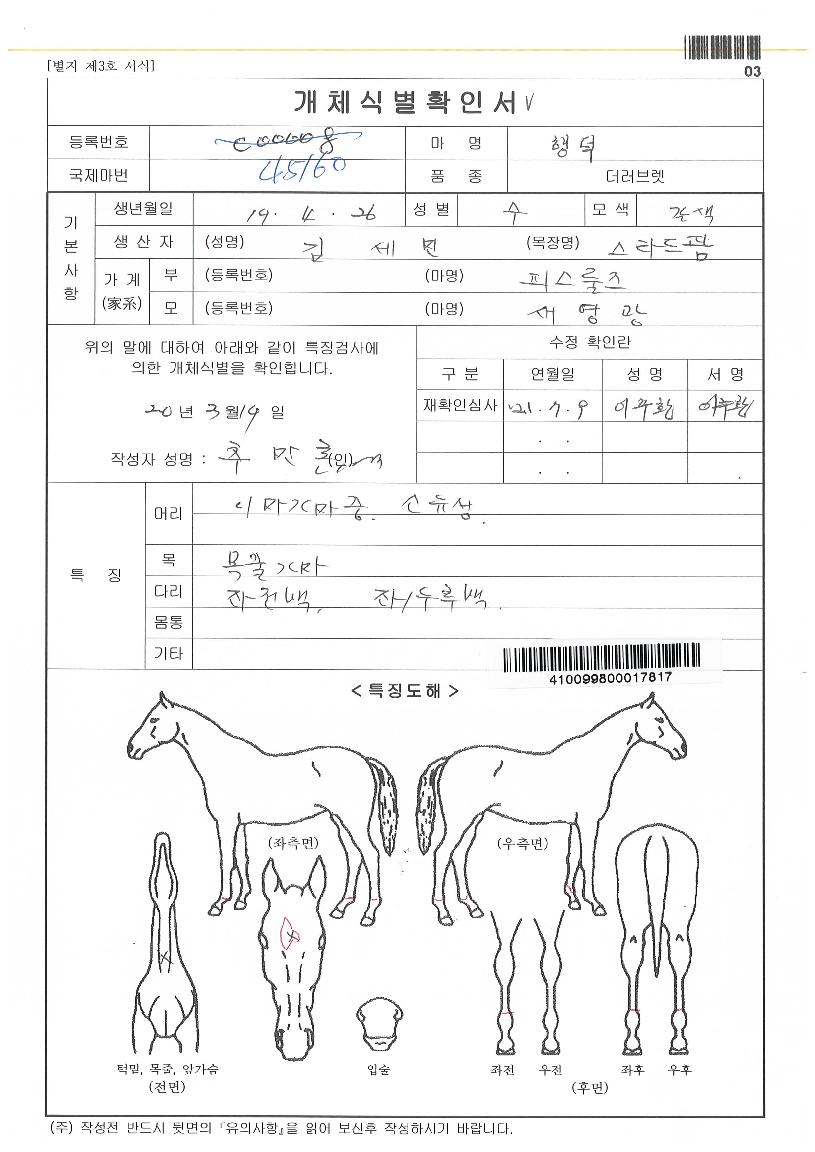 03
[별지 제3호 서식]
개체식별확인서 V
등록번호
마 명 행덕
국제마번 45160 품 종 더러브렛
기본사항
생년월일 19. 4. 26 성별 수 모색 갈색
생산자 (성명) 김세민 (목장명) 스타드팜
가계(家系) 부 (등록번호) (마명) 피스룰즈
모 (등록번호) (마명) 새영광
위의 말에 대하여 아래와 같이 특징검사에
의한 개체식별을 확인합니다.
20년 3월 19일
작성자 성명 : (인)
수정 확인란
구분 연월일 성명 서명
재확인심사 '21. 7. 9
. .
. .
특 징
머리
목 목줄가마
다리 좌전백,
몸통
기타
410099800017817
< 특징도해 >
(좌측면) (우측면)
턱밑, 목줄, 앞가슴
(전면)
입술
좌전 우전 좌후 우후
(후면)
(주) 작성전 반드시 뒷면의 『유의사항』을 읽어 보신후 작성하시기 바랍니다.